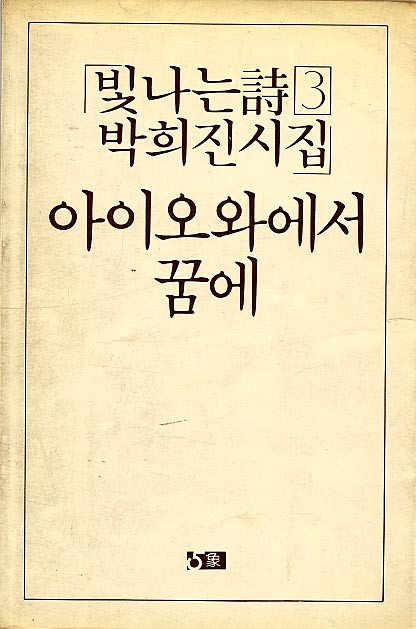 「빛나는詩3
박희진시집」
아이오와에서
꿈에
5象